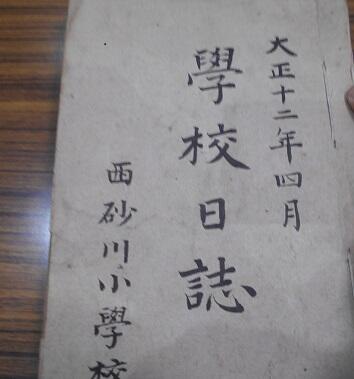 大正十二年四月
學校日誌
西砂川小學校